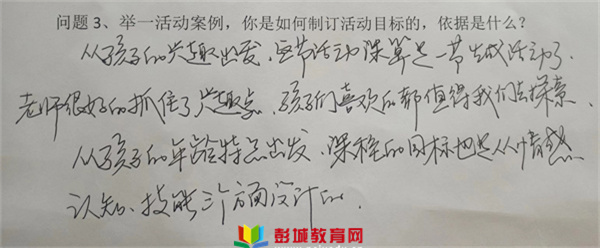 问题 3、举一活动案例，你是如何制订活动目标的，依据是什么？
从孩子的兴趣出发，这节活动课算是一节生成活动了.
老师很好的抓住了兴趣点，孩子们喜欢的都值得我们去探索.
从孩子的年龄特点出发，课程的目标也是从情感
认知、技能三个方面设计的.
彭城教育网